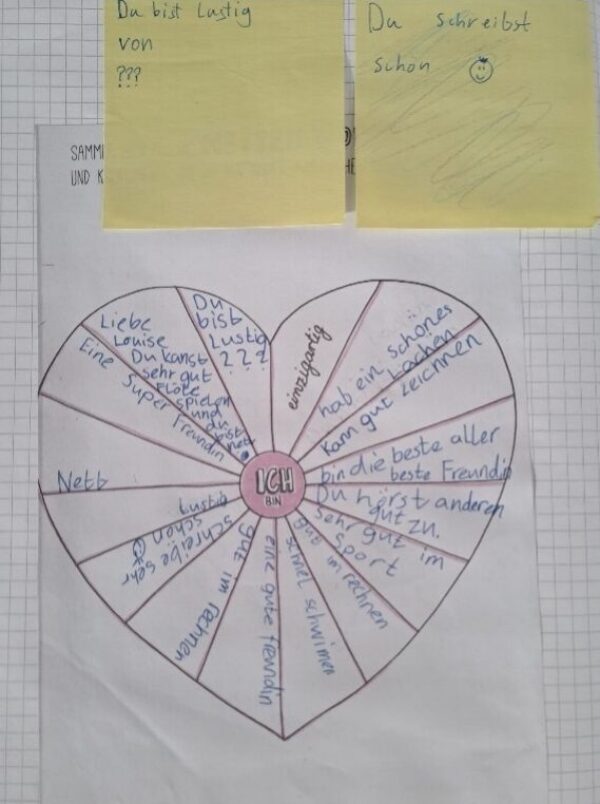 Du bist Lustig
von
???
Du schreibst
schön
SAMM
UND K
Du
bist
Lustig
???
einzigartig
hab ein schönes
Lachen
kann gut zeichnen
bin die beste aller
beste Freundin
Du hörst anderen
gut zu.
sehr gut im
Sport
gut im rechnen
schnel schwimen
eine gute freundin
gut im rechnen
schreibe sehr
schön
Lustig
Nett
Eine
Super Freundin
Liebe
Louise
Du kanst
sehr gut
Flöte
spielen
und
du
bist
nett
ICH
BIN